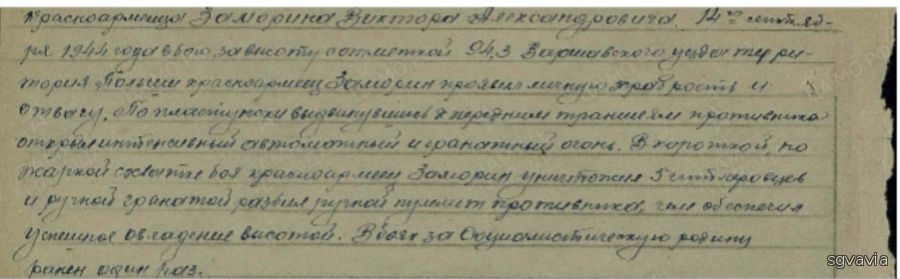 Красноармейца Заморина Виктора Александровича. 14го сентяб-
ря 1944 года в бою за высоту с отметкой 94,3 Варшавского уезда терри-
тория Польши красноармеец Заморин проявил личную храбрость и
отвагу. По пластунски выдвинувшись к передним траншеям противника
открыл интенсивный автоматный и гранатный огонь. В короткой, но
жаркой схватке боя красноармеец Заморин уничтожил 5 гитлеровцев
и ручной гранатой разбил ручной пулемет противника, чем обеспечил
успешное овладение высотой. В боях за Социалистическую родину
ранен один раз.
sgvavia